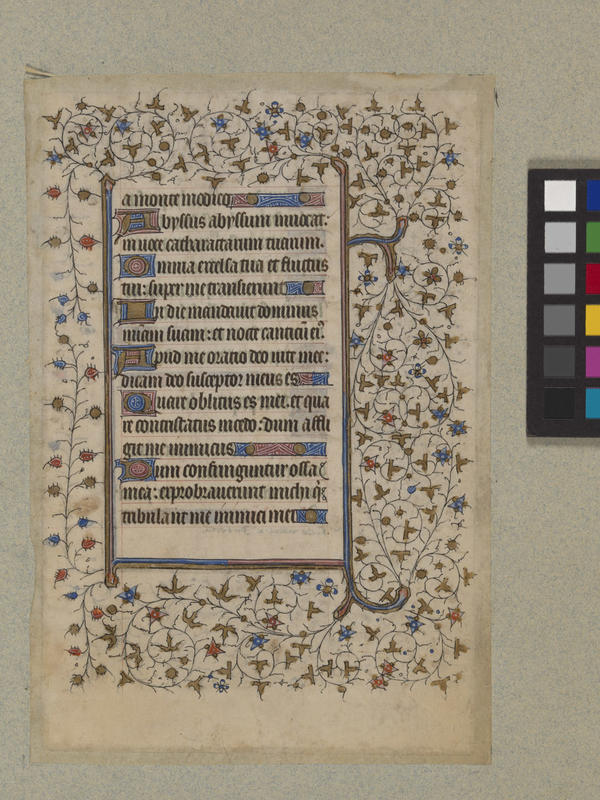 a monte modico
Abyssus abyssum inuocat:
in uoce catharactarum tuarum.
Omnia excelsa tua et fluctus
tui: super me transierunt
In die mandauit dominus
misericordiam suam: et nocte canticum eius
Apud me oratio deo uite mee:
dicam deo susceptor meus es
Quare oblitus es mei. et qua
re contristatus incedo: dum affli
git me inimicus
Dum confringuntur ossa
mea: exprobrauerunt michi qui
tribulant me inimici mei